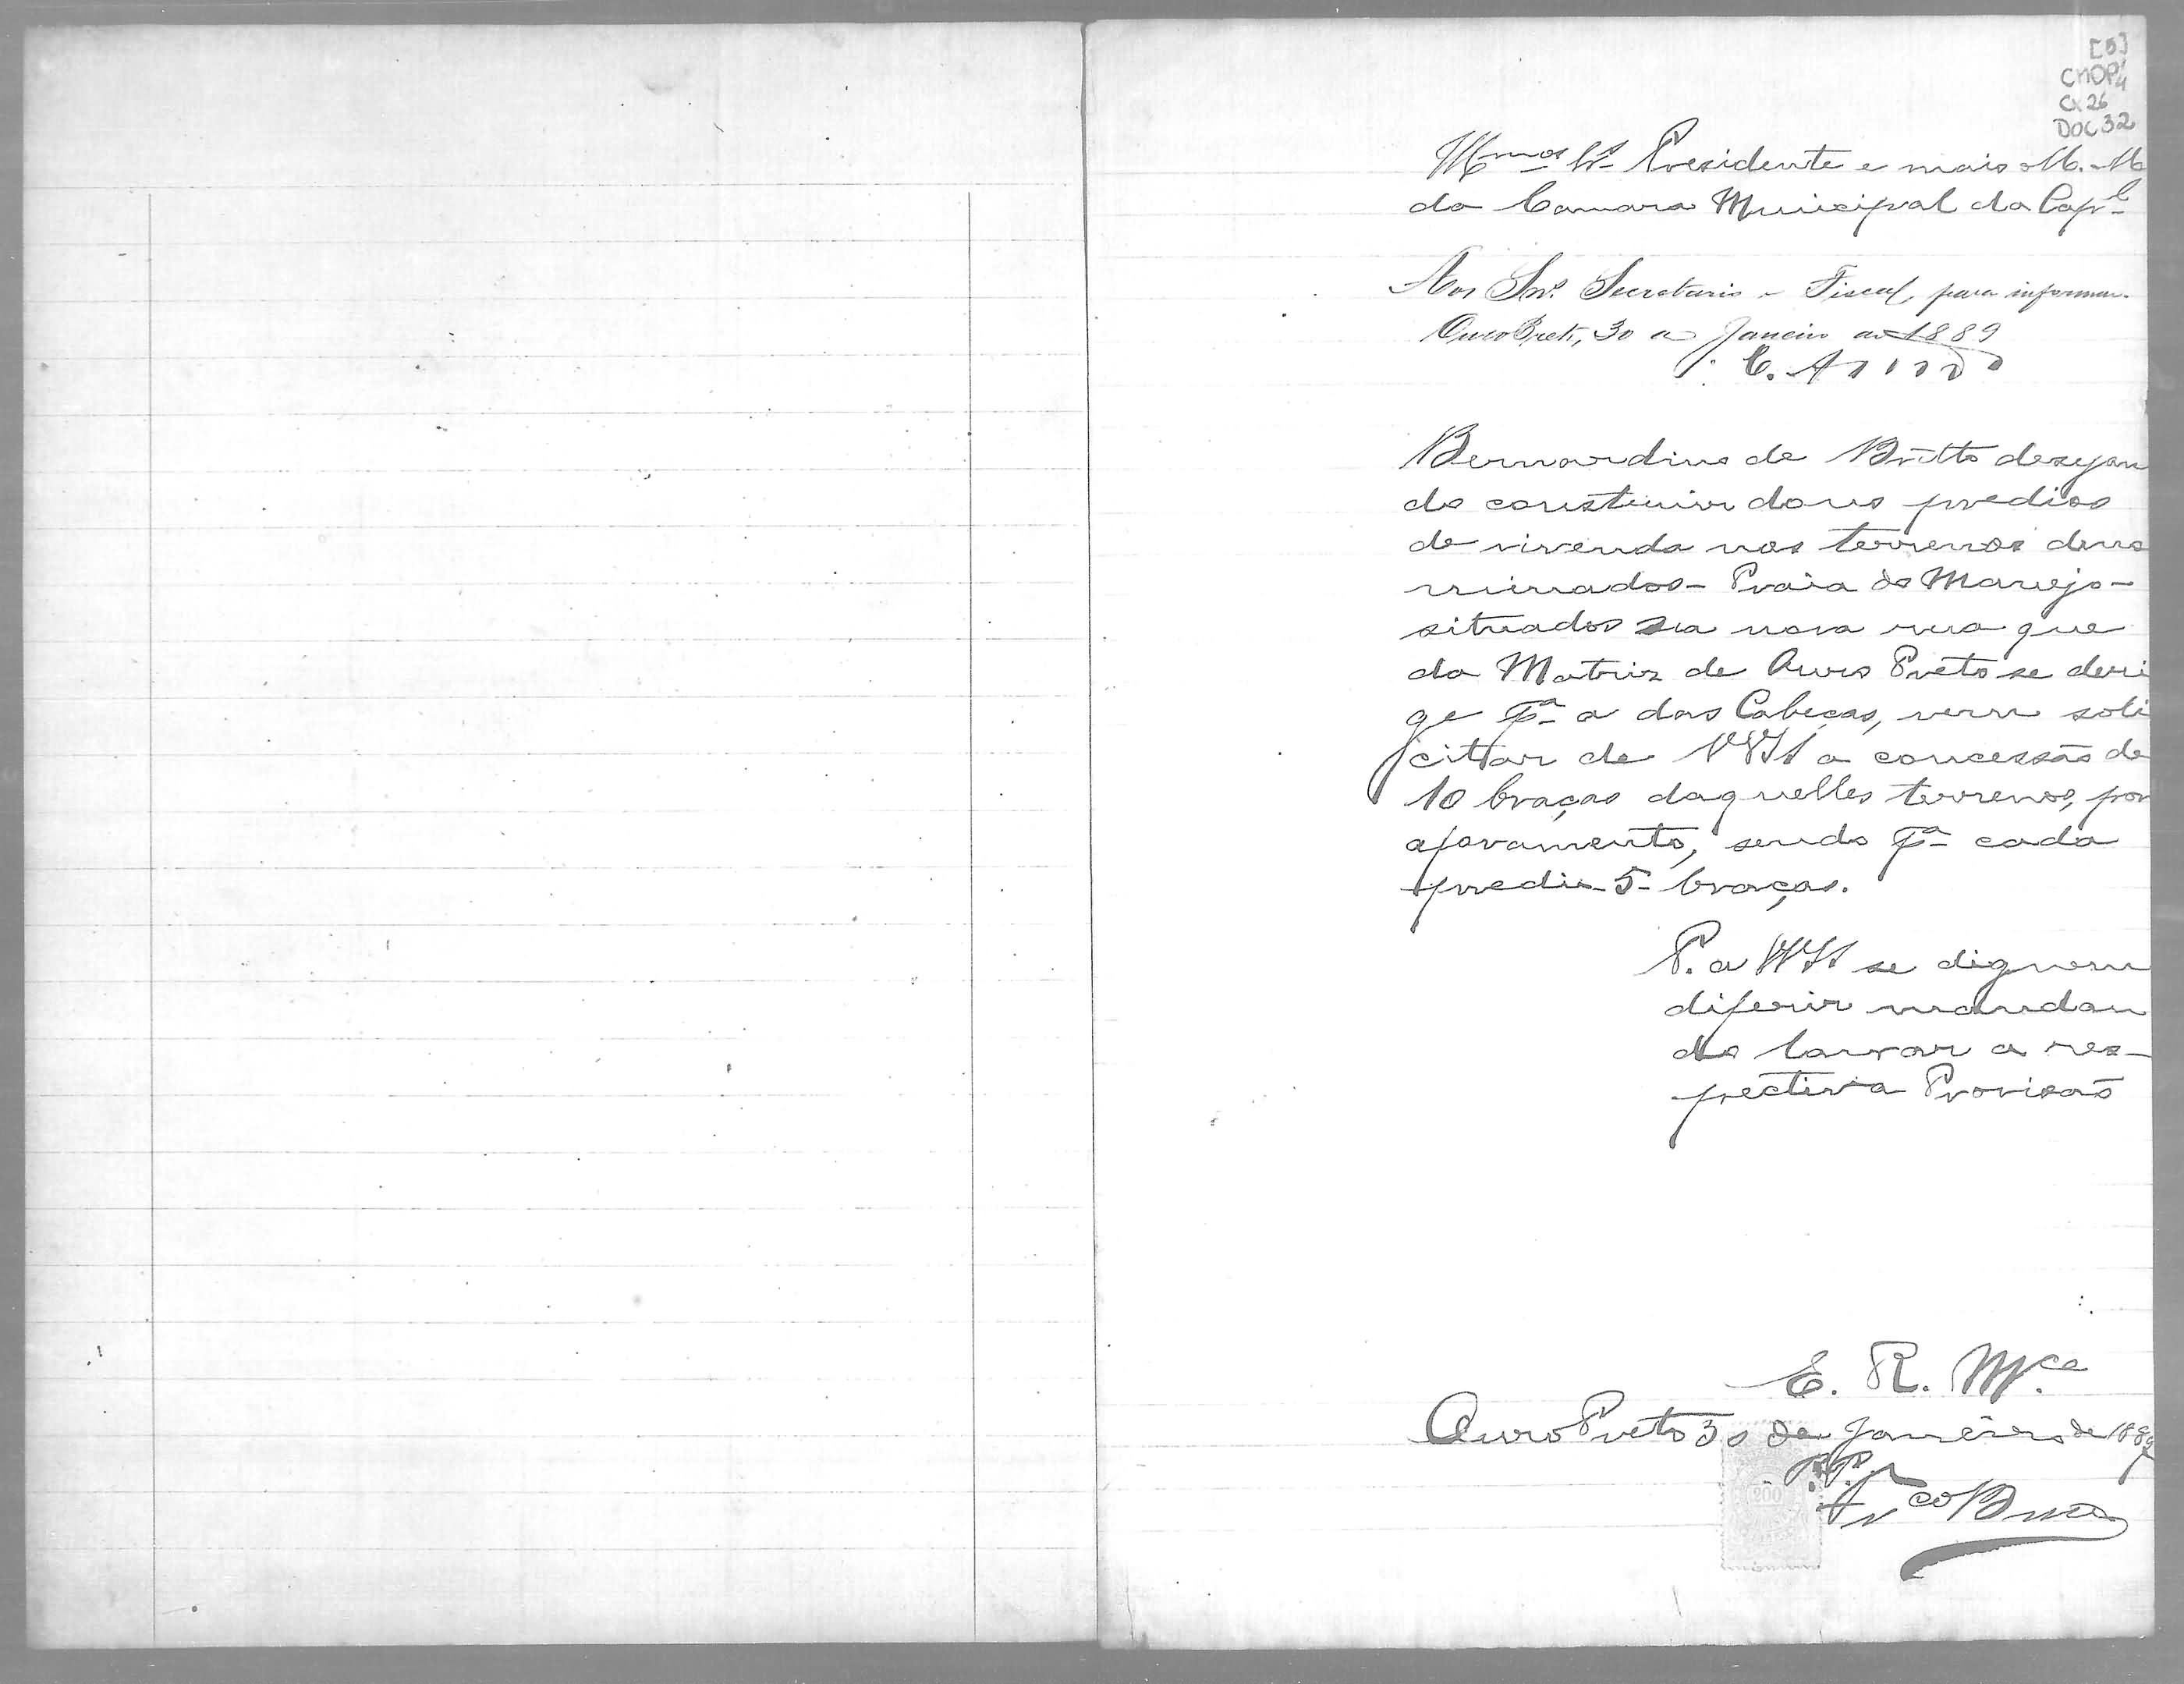 [5]
CMOP
Cx 26
DOC 32
Illmos Srs Presidente e mais M. M
da Camara Municipal da Capl
Aos Snrs Secretario e Fiscal, para informar.
Ouro Preto, 30 de Janeiro de 1889
Bernardino de Britto desejan
do construir dous predios
de vivenda nos terrenos deno
minados - Praia do Manejo -
situados na nova rua que
da Matriz de Ouro Preto se deri
ge pa a das Cabeças, vem soli
cittar de VVSS a concessão de
10 braças daquelles terrenos, por
aforamento, sendo pa cada
predio 5 braças.
P. a VVSS se dignem
diferir mandan
do lavrar a res-
pectiva Provisão
E. R. Mce
Ouro Preto 30 de Janeiro de 1889
P.P.
Frco